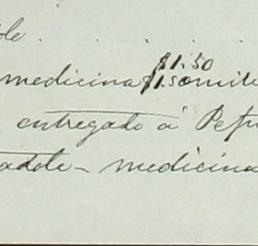 de.
$1.50
medicina $1.50 mite
entregado á Pep
adole - medicina